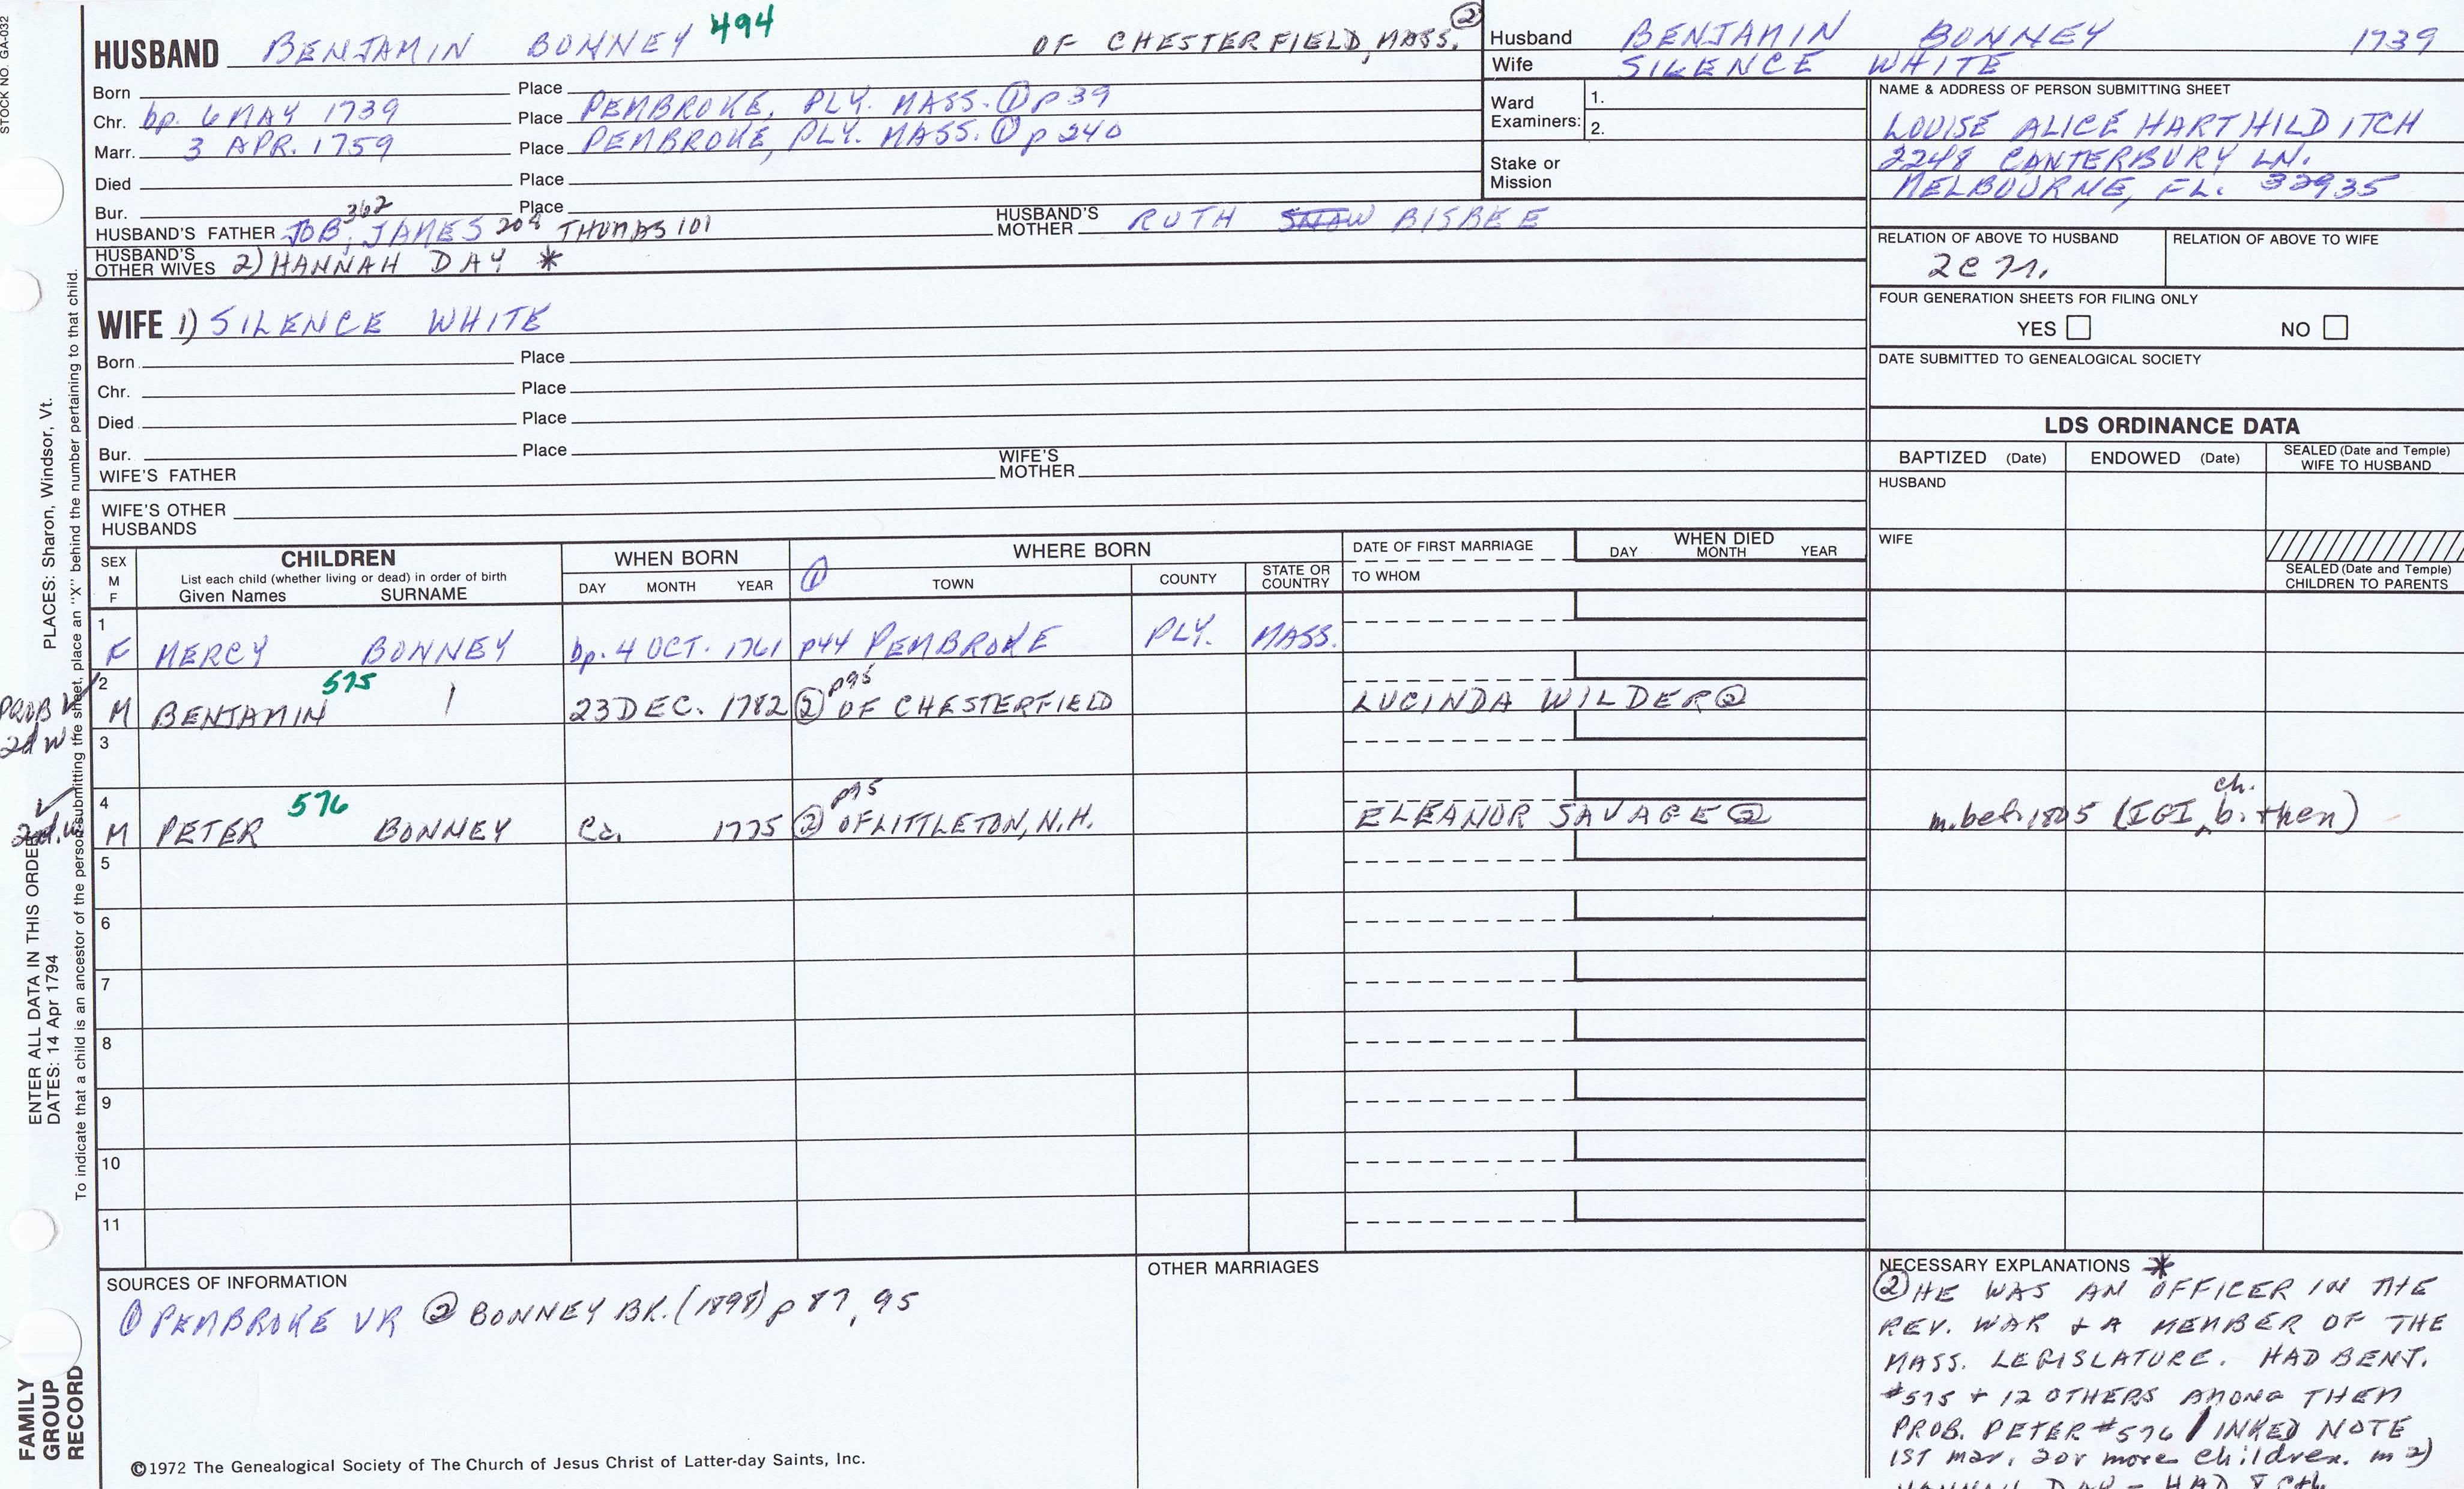 STOCK NO. GA-032
HUSBAND BENJAMIN BONNEY 494 OF CHESTERFIELD, MASS. ②
Born Place
Chr. bp. 6 MAY 1739 Place PEMBROKE, PLY. MASS. ① p 39
Marr. 3 APR. 1759 Place PEMBROKE, PLY. MASS. ① p 240
Died Place
Bur. Place
HUSBAND'S FATHER JOB, 362 JAMES 208 THOMAS 101 HUSBAND'S MOTHER RUTH SHAW BISBEE
HUSBAND'S OTHER WIVES 2) HANNAH DAY *
WIFE 1) SILENCE WHITE
Born Place
Chr. Place
Died Place
Bur. Place
WIFE'S FATHER WIFE'S MOTHER
WIFE'S OTHER HUSBANDS
Husband BENJAMIN BONNEY 1739
Wife SILENCE WHITE
Ward Examiners: 1.
2.
Stake or Mission
NAME & ADDRESS OF PERSON SUBMITTING SHEET
LOUISE ALICE HART HILDITCH
2248 CANTERBURY LN.
MELBOURNE, FL. 32935
RELATION OF ABOVE TO HUSBAND RELATION OF ABOVE TO WIFE
FOUR GENERATION SHEETS FOR FILING ONLY
YES NO
DATE SUBMITTED TO GENEALOGICAL SOCIETY
LDS ORDINANCE DATA
BAPTIZED (Date) ENDOWED (Date) SEALED (Date and Temple) WIFE TO HUSBAND
HUSBAND
WIFE
SEALED (Date and Temple) CHILDREN TO PARENTS
SEX M F CHILDREN List each child (whether living or dead) in order of birth Given Names SURNAME
WHEN BORN DAY MONTH YEAR
WHERE BORN ① TOWN COUNTY STATE OR COUNTRY
DATE OF FIRST MARRIAGE TO WHOM
WHEN DIED DAY MONTH YEAR
1 F MERCY BONNEY bp. 4 OCT. 1761 p44 PEMBROKE PLY. MASS.
PROB 2d W
2 M BENJAMIN 575 23 DEC. 1782 ② p95 OF CHESTERFIELD LUCINDA WILDER ②
3
2d. w.
4 M PETER 576 BONNEY Ca. 1775 ② p95 OF LITTLETON, N.H. ELEANOR SAVAGE ② m. bef. 1805 (IGI ch. b. then)
5
6
7
8
9
10
11
SOURCES OF INFORMATION
① PEMBROKE VR ② BONNEY BK. (1898) p 87, 95
OTHER MARRIAGES
NECESSARY EXPLANATIONS *
② HE WAS AN OFFICER IN THE
REV. WAR + A MEMBER OF THE
MASS. LEGISLATURE. HAD BENJ.
#575 + 12 OTHERS AMONG THEM
PROB. PETER #576 / INKED NOTE
1ST mar. 2 or more children. m 2)
HANNAH DAY - HAD 8
©1972 The Genealogical Society of The Church of Jesus Christ of Latter-day Saints, Inc.
FAMILY GROUP RECORD
ENTER ALL DATA IN THIS ORDER
DATES: 14 Apr 1794
PLACES: Sharon, Windsor, Vt.
To indicate that a child is an ancestor of the person submitting the sheet, place an "X" behind the number pertaining to that child.